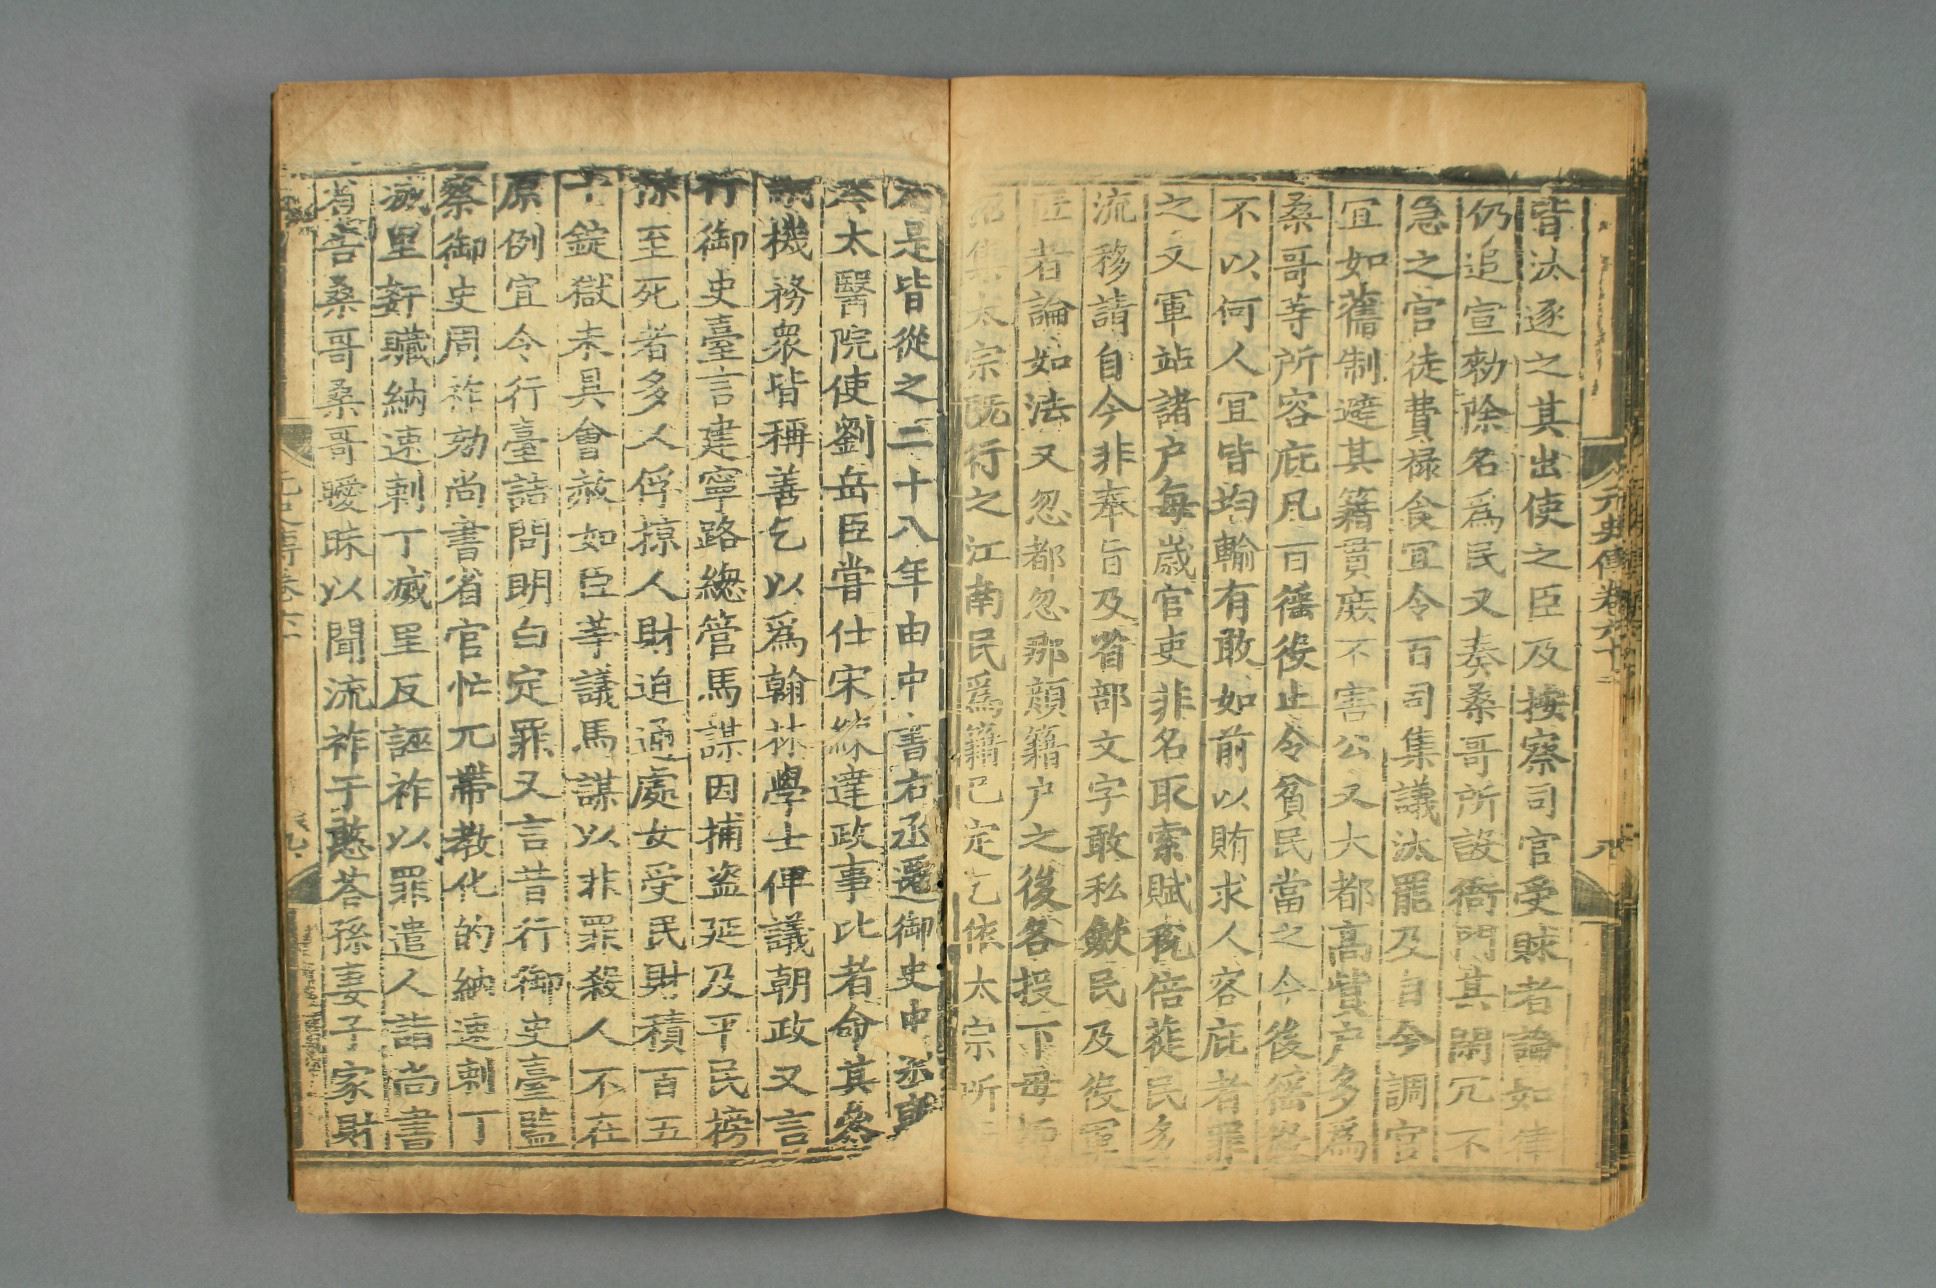 元史傳卷六十
皆汰逐之其出使之臣及按察司官受賕者論如律
仍追宣勑除名爲民又奏桑哥所設衙門其閑冗不
急之官徒費祿食宜令百司集議汰罷及自今調官
宜如舊制避其籍貫庶不害公又大都高貲户多爲
桑哥等所容庇凡百徭役止令貧民當之今後徭役
不以何人宜皆均輸有敢如前以賄求人容庇者罪
之又軍站諸户每歲官吏非名取索賦稅倍蓰民多
流移請自今非奉旨及省部文字敢私歛民及役軍
匠者論如法又忽都忽那顔籍户之後各授下毋
集太宗既行之江南民爲籍已定乞依太宗所
爲是皆從之二十八年由中書右丞遷御史中丞
太醫院使劉岳臣嘗仕宋練達政事比者命其參
機務衆皆稱善乞以爲翰林學士俾議朝政又言
行御史臺言建寧路總管馬謀因捕盗延及平民榜
掠至死者多又俘掠人財迫通處女受民財積百五
十錠獄未具會赦如臣等議馬謀以非罪殺人不在
原例宜令行臺詰問明白定罪又言昔行御史臺監
察御史周祚劾尚書省官忙兀帶教化的納速剌丁
滅里奸贓納速剌丁滅里反誣祚以罪遣人詣尚書
省告桑哥桑哥曖昧以聞流祚于憨荅孫妻子家財